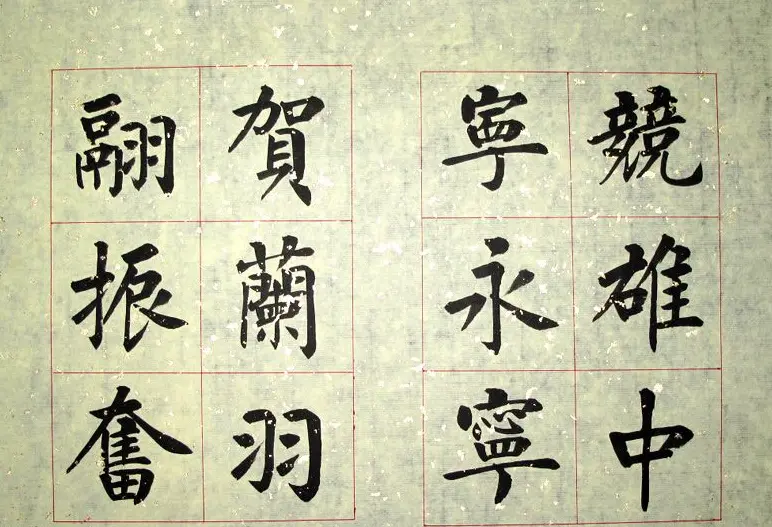 競雄中
寧永寧
賀蘭羽
翮振奮